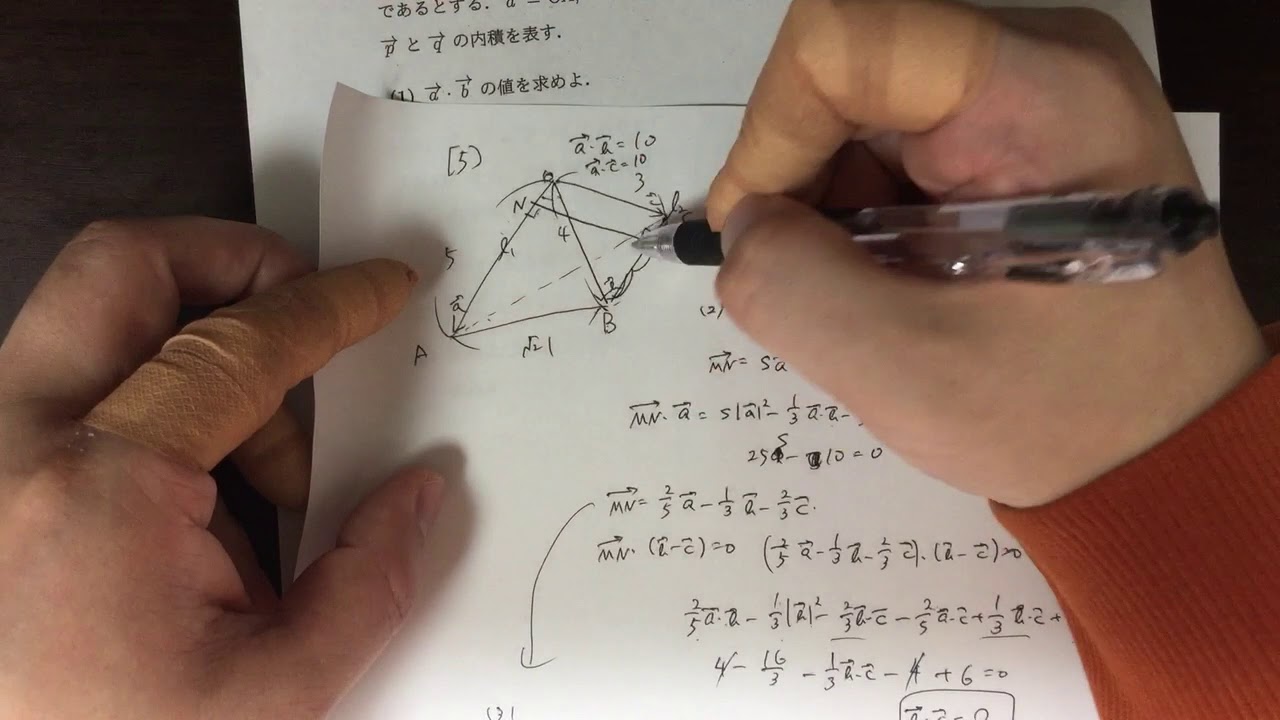 であるとする.
p→ と q→ の内積を表す.
(1) a→・b→ の値を求めよ.
[5]
a→・b→ = 10
a→・c→ = 10
3
N
l₁
4
l₂
5
a→
b→
c→
A
√21
B
(2)
MN→ = sa→
MN→・a→ = s|a→|² - 1/3 a→・b→ -
25s - 10 = 0
MN→ = 2/5 a→ - 1/3 b→ - 2/3 c→.
MN→・(b→ - c→) = 0 (2/5 a→ - 1/3 b→ - 2/3 c→)・(b→ - c→) = 0
2/5 a→・b→ - 1/3 |b→|² - 2/3 b→・c→ - 2/5 a→・c→ + 1/3 b→・c→ +
4 - 16/3 - 1/3 b→・c→ - 4 + 6 = 0
(3)